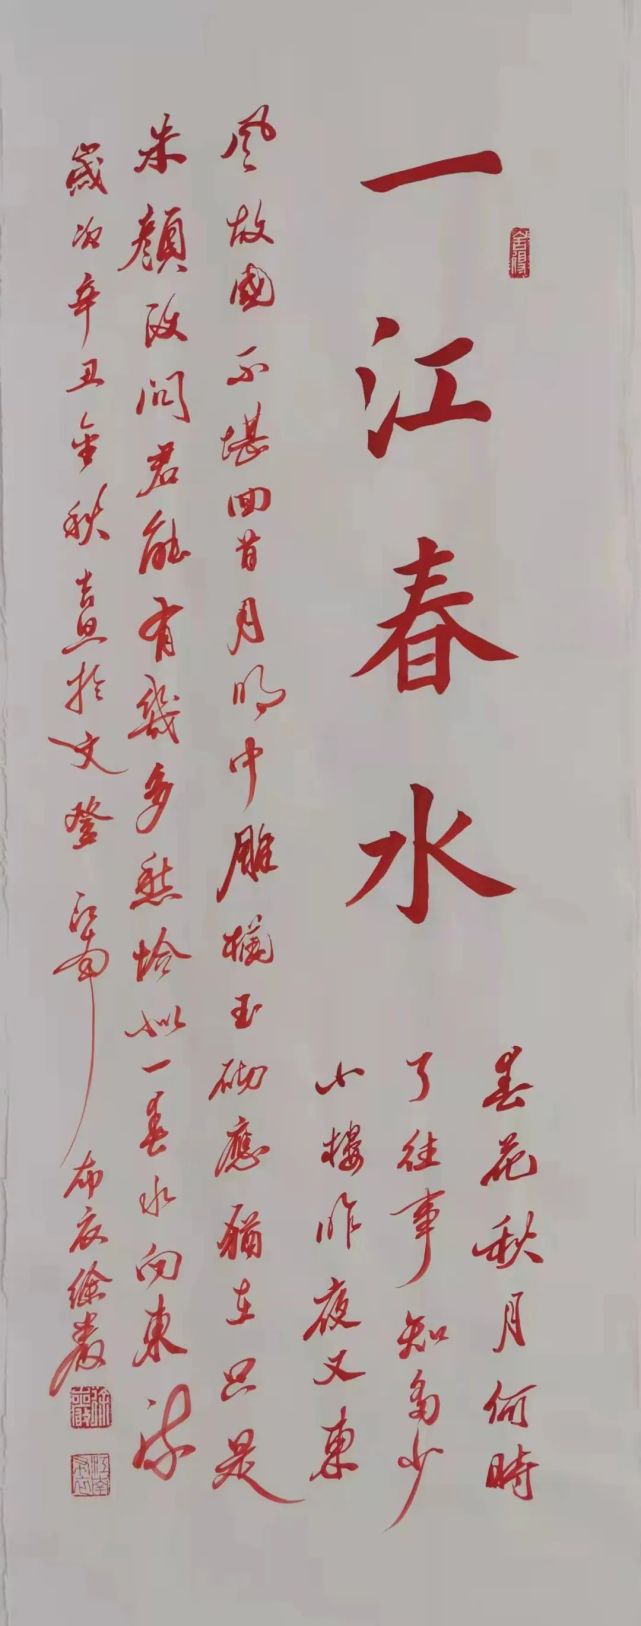 一江春水
舍得
春花秋月何時
了往事知多少
小樓昨夜又東
風故國不堪回首月明中雕欄玉砌應猶在只是
朱顏改問君能有幾多愁恰似一春水向東流
歲次辛丑金秋吉旦於文登江南布衣徐嚴
徐嚴
江南布衣